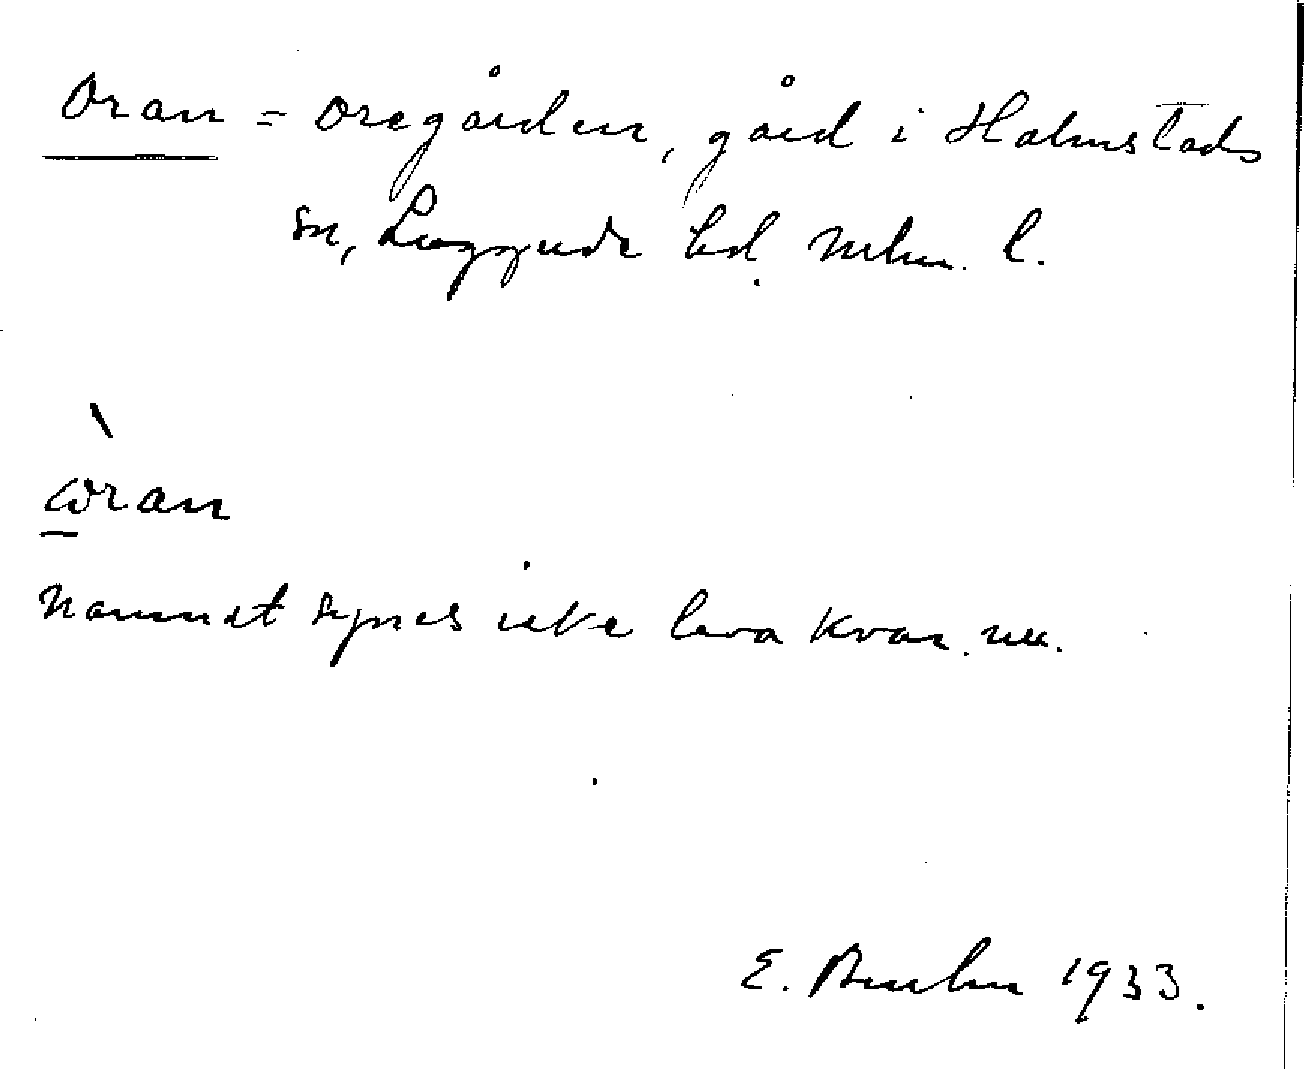 Oran = Oregården, gård i Halmstads
sn, Luggude hd. Mlm. l.
ωran
Namnet synes icke leva kvar. nu.
E. Bruhn 1933.